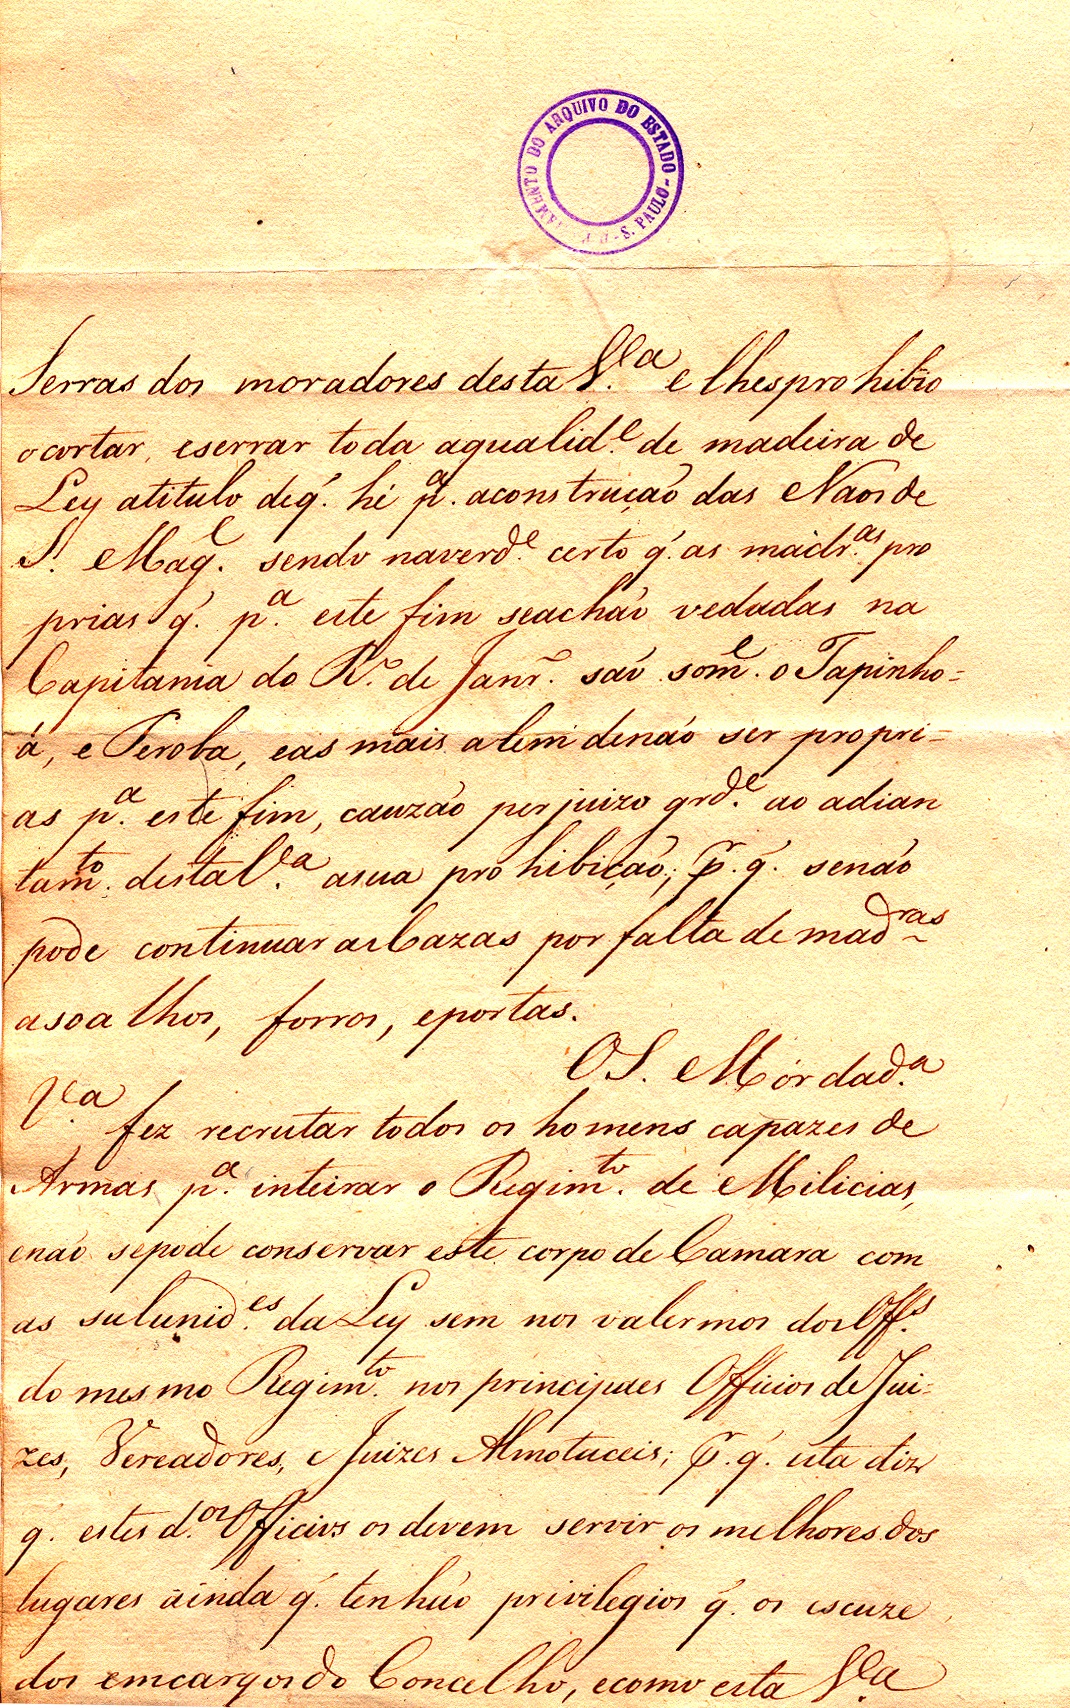 AMENTO DO ARQUIVO DO ESTADO - S. PAULO -
Serras dos moradores desta V.ª e lhes prohibio
o cortar, e serrar toda a qualid.e de madeira de
Ley a titulo de q' hé p.ª a construção das Naos de
S. Mag.e sendo na verd.e certo q' as madr.as pro
prias q' p.ª este fim se achão vedadas na
Capitania do R.º de Janr.º são som.e o Tapinho=
á, e Peroba, e as mais alem de não ser propri=
as p.ª este fim, cauzão perjuizo grd.e ao adian
tam.to desta V.ª a sua prohibição; p.r q' se não
pode continuar as Cazas por falta de mad.ras
asoalhos, forros, e portas.
O S. Mór da d.ª
V.ª fez recrutar todos os homens capazes de
Armas p.ª inteirar o Regim.to de Milicias,
e não se pode conservar este corpo de Camara com
as sulunid.es da Ley sem nos valermos dos Off.s
do mesmo Regim.to nos principaes Officios de Jui=
zes, Vereadores, e Juizes Almotaceis; p.r q' esta diz
q' estes d.os Officios os devem servir os melhores dos
lugares ainda q' tenhão privilegios q' os escuze
dos emcargos do Concelho, e como esta V.ª